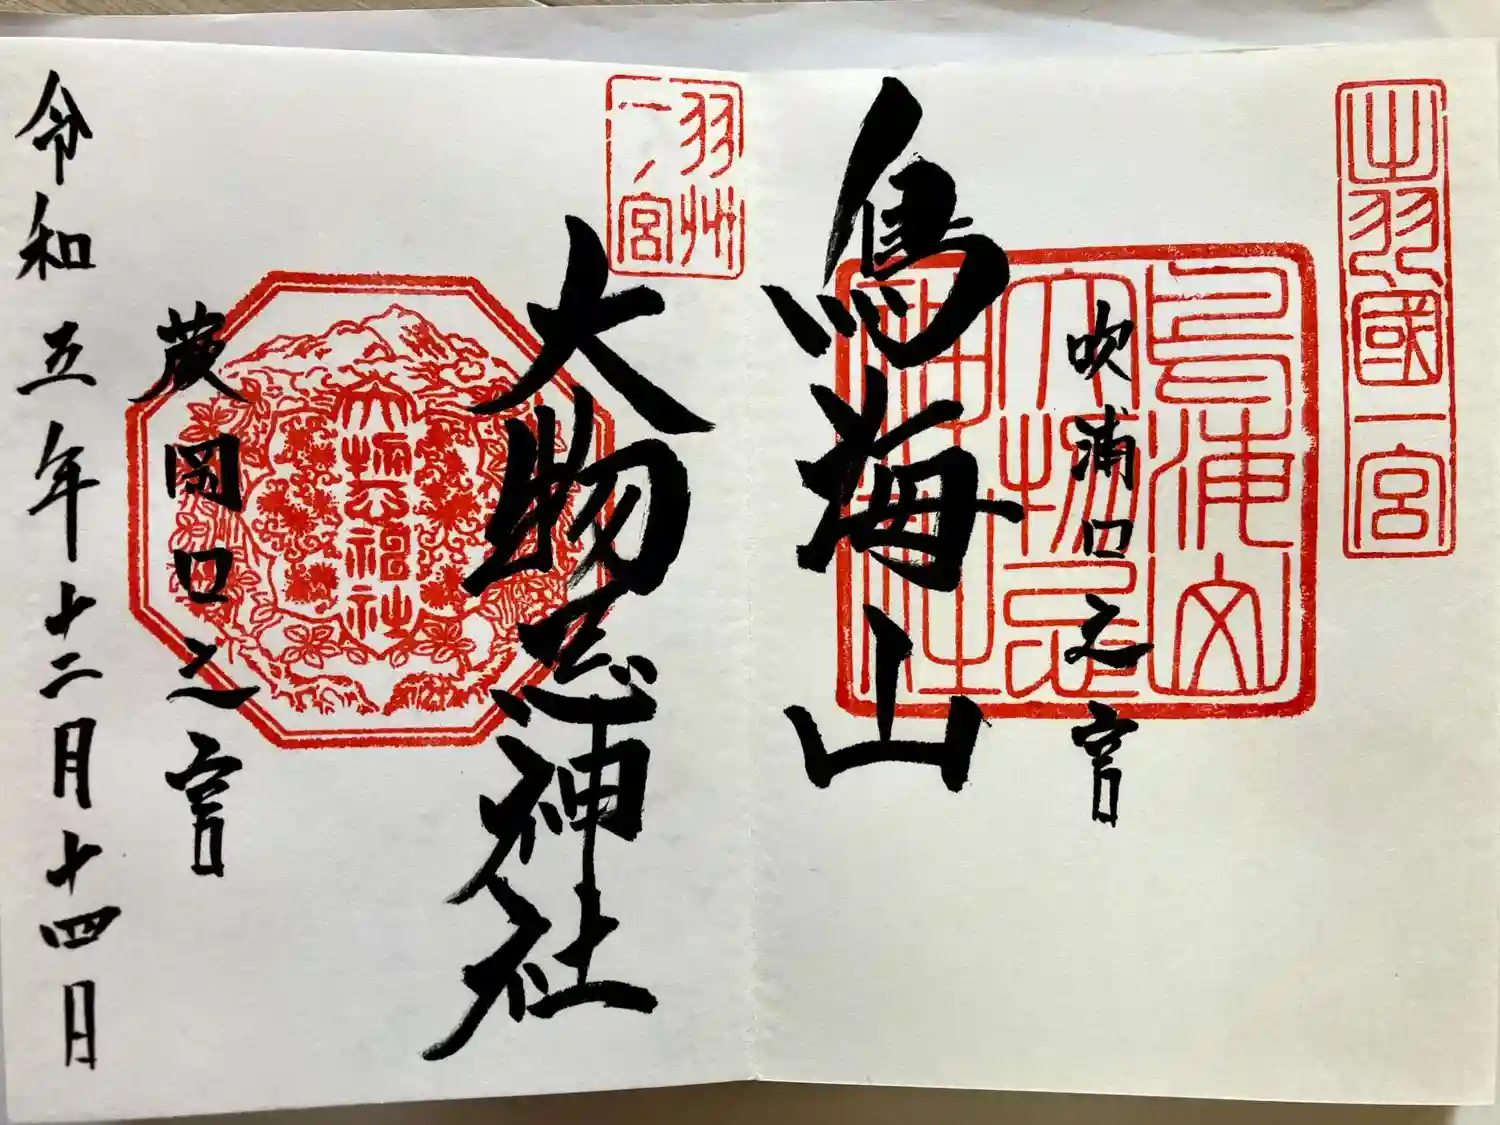 出羽國一宮
吹浦口之宮
鳥海山
大物忌
神社
鳥海山
羽州
一ノ宮
大物忌神社
大物忌神社
蕨岡口之宮
令和五年十二月十四日